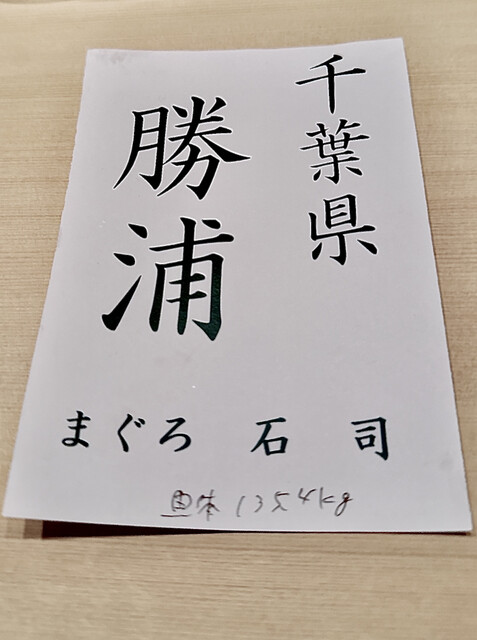 千葉県
勝浦
まぐろ 石司
魚体 135.4kg